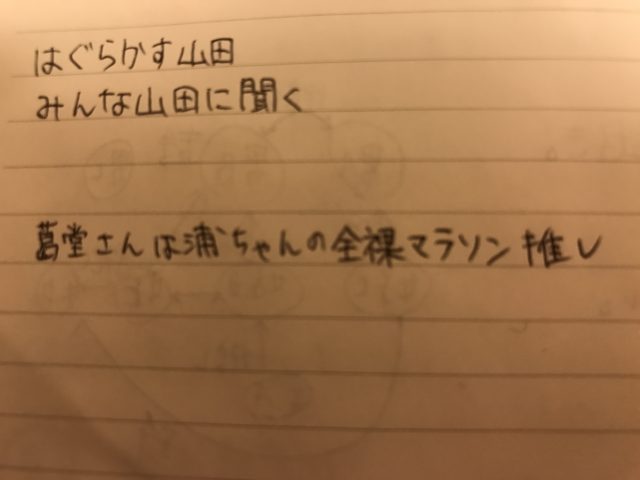 はぐらかす山田
みんな山田に聞く
葛堂さんは浦ちゃんの全裸マラソン推し